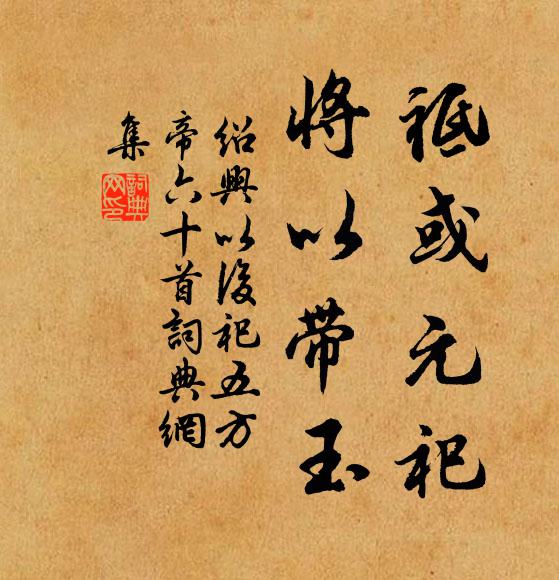 祗或元祀
將以带玉
紹興以後祀五方
帝六十首詞典網
集
詞典
网印